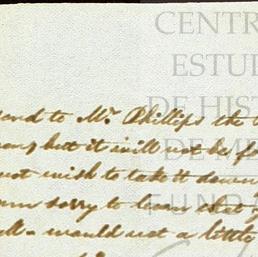 CENTR
ESTUD
DE HIST
DE ME
FUND
end to Mr. Phillips the
but it will not be
not wish to take it down
sorry to learn that
would not a little